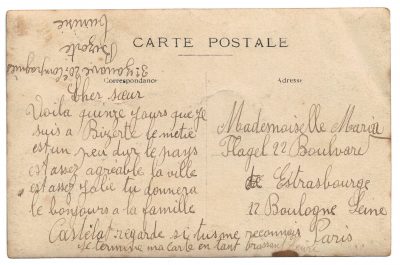 3e Zouave 20e Compagnie
Bizerte
Tunisie
CARTE POSTALE
Correspondance
Adresse
Cher sœur
Voila quinze jours que je
suis a Bizerte le metié
est un peu dur le pays
est assez agreable la ville
est assez jolie tu donnera
le bonjours a la famille
Castelat regarde si tu me reconnais
je termine ma carte en tant brassant
Mademoiselle Maria
Flagel 22 Boulvare
de Estrasbourge
12 Boulogne Seine
Paris